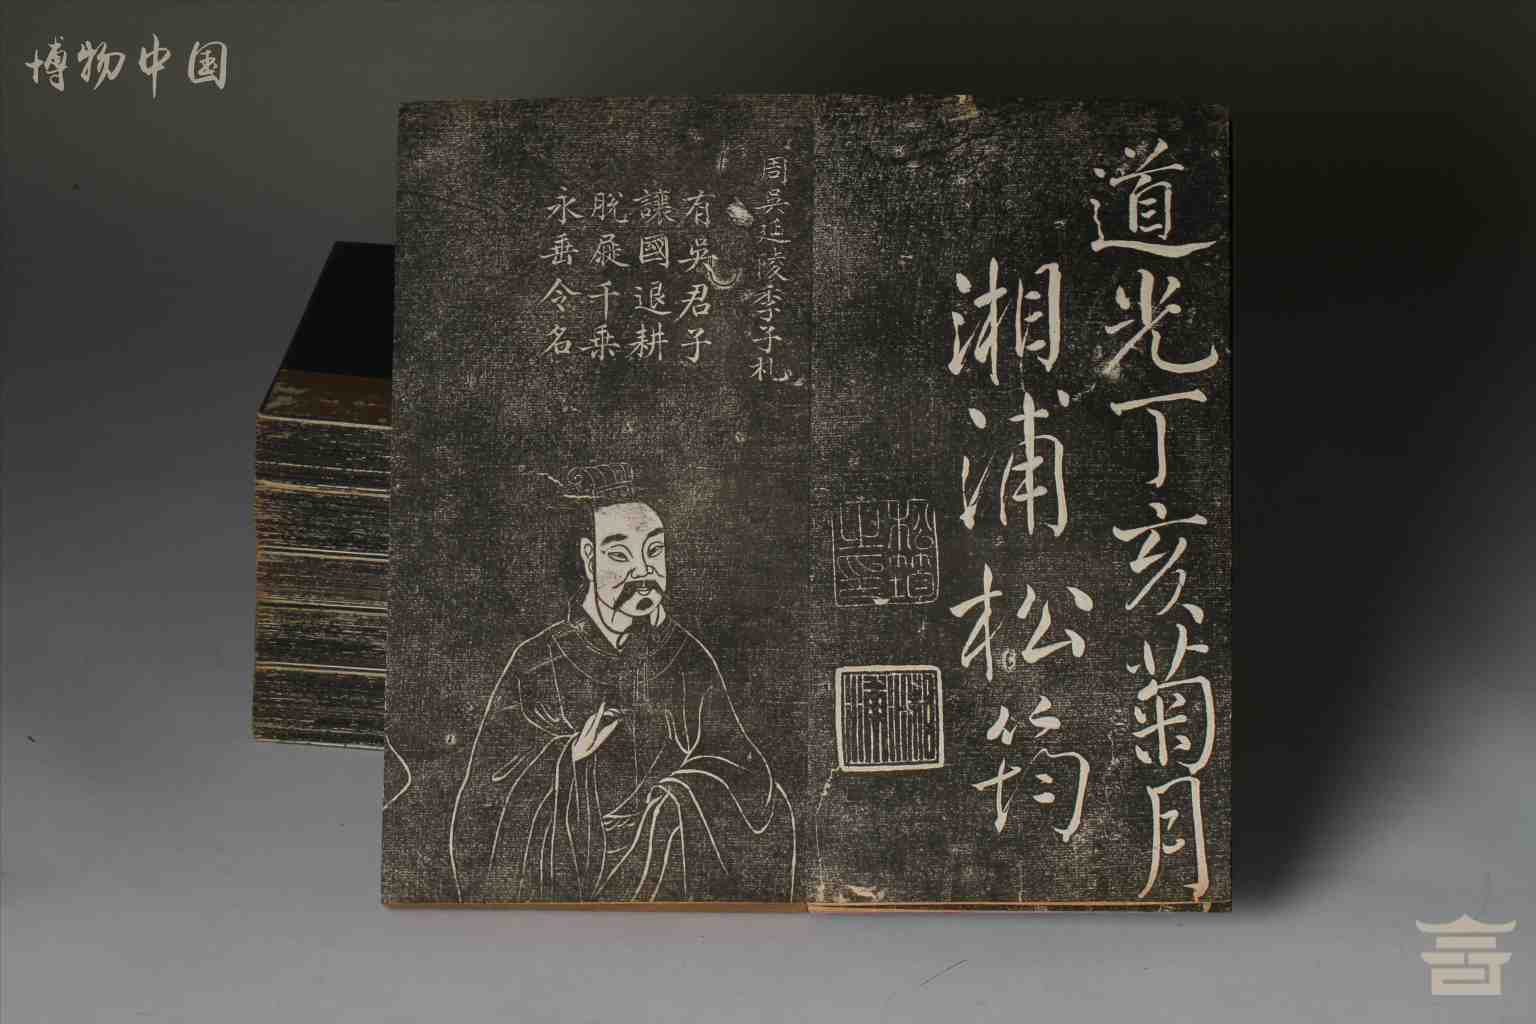 博物中国
道光丁亥菊月
湘浦松筠
松筠
之印
湘
浦
周吳延陵季子札
有吳君子
讓國退耕
脫屣千乘
永垂令名